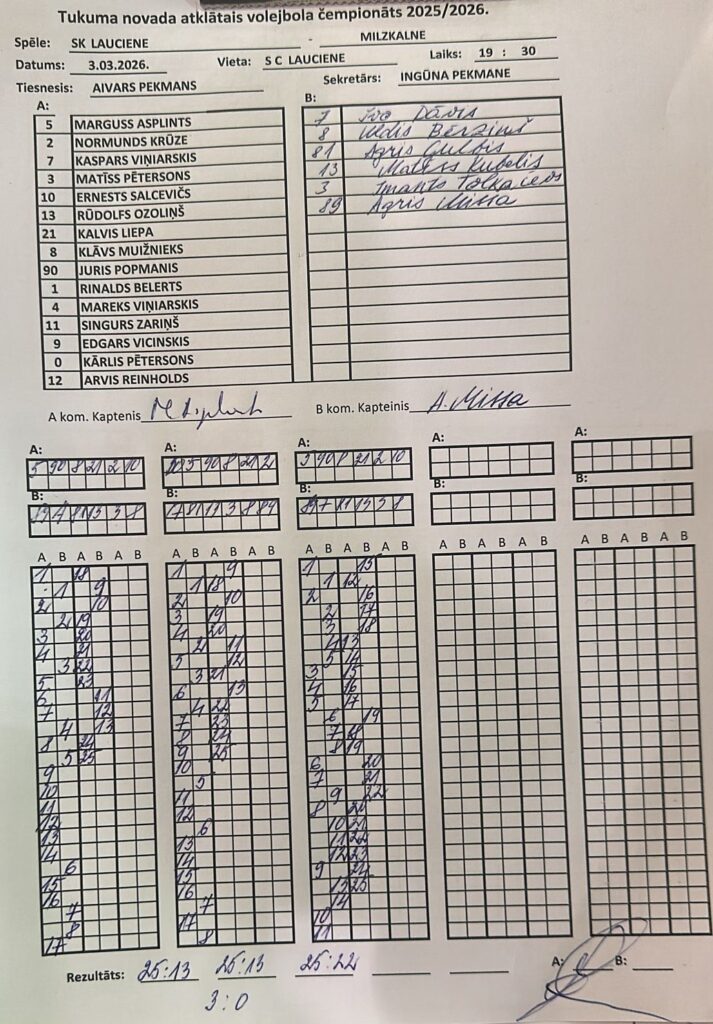 Tukuma novada atklātais volejbola čempionāts 2025/2026.
Spēle: SK LAUCIENE - MILZKALNE
Datums: 3.03.2026. Vieta: S C LAUCIENE Laiks: 19 : 30
Tiesnesis: AIVARS PEKMANS Sekretārs: INGŪNA PEKMANE
A: B:
5 MARGUSS ASPLINTS 7 Ivo Dāvis
2 NORMUNDS KRŪZE 8 Uldis Bērziņš
7 KASPARS VIŅIARSKIS 81 Agris Gulbis
3 MATĪSS PĒTERSONS 13 Matīss Kubelis
10 ERNESTS SALCEVIČS 3 Imants
13 RŪDOLFS OZOLIŅŠ 89 Agris Missa
21 KALVIS LIEPA
8 KLĀVS MUIŽNIEKS
90 JURIS POPMANIS
1 RINALDS BELERTS
4 MAREKS VIŅIARSKIS
11 SINGURS ZARIŅŠ
9 EDGARS VICINSKIS
0 KĀRLIS PĒTERSONS
12 ARVIS REINHOLDS
A kom. Kaptenis B kom. Kapteinis A. Missa
A: A: A: A: A:
5 90 8 21 2 10 5 90 8 21 2 3 90 8 21 2 10
B: B: B: B: B:
13 3 8 7 81 13 3 8 89 7 81 13 3 8
A B A B A B A B A B A B A B A B A B A B A B A B A B A B A B
1 18 1 9 1 15
1 9 1 18 1 12
2 10 2 10 2 16
2 19 3 19 2 17
3 20 4 20 3 18
4 21 2 11 4 13
3 22 5 12 5 14
5 23 3 21 3 15
6 11 6 13 4 16
7 12 4 22 5 17
4 13 7 23 6 19
8 24 8 24 7 18
5 25 9 25 8 19
9 10 6 20
10 5 7 21
11 11 9 22
12 12 8 20
13 6 10 21
14 13 11 22
6 14 12 23
15 15 9 24
16 16 13 25
7 7 14
8 17 10
17 8 11
Rezultāts: 25:13 25:13 25:22 A: B:
3:0